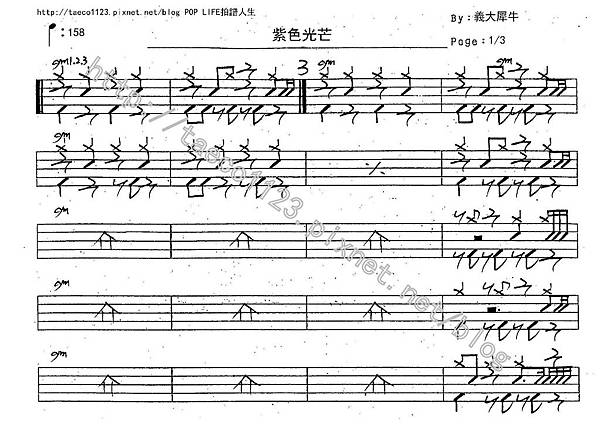 http://taeco1123.pixnet.net/blog POP LIFE拍譜人生
By：義大犀牛
:158
紫色光芒
Page：1/3
gm1.2.3
3
gm
gm
gm
gm
http://taeco1123.pixnet.net/blog